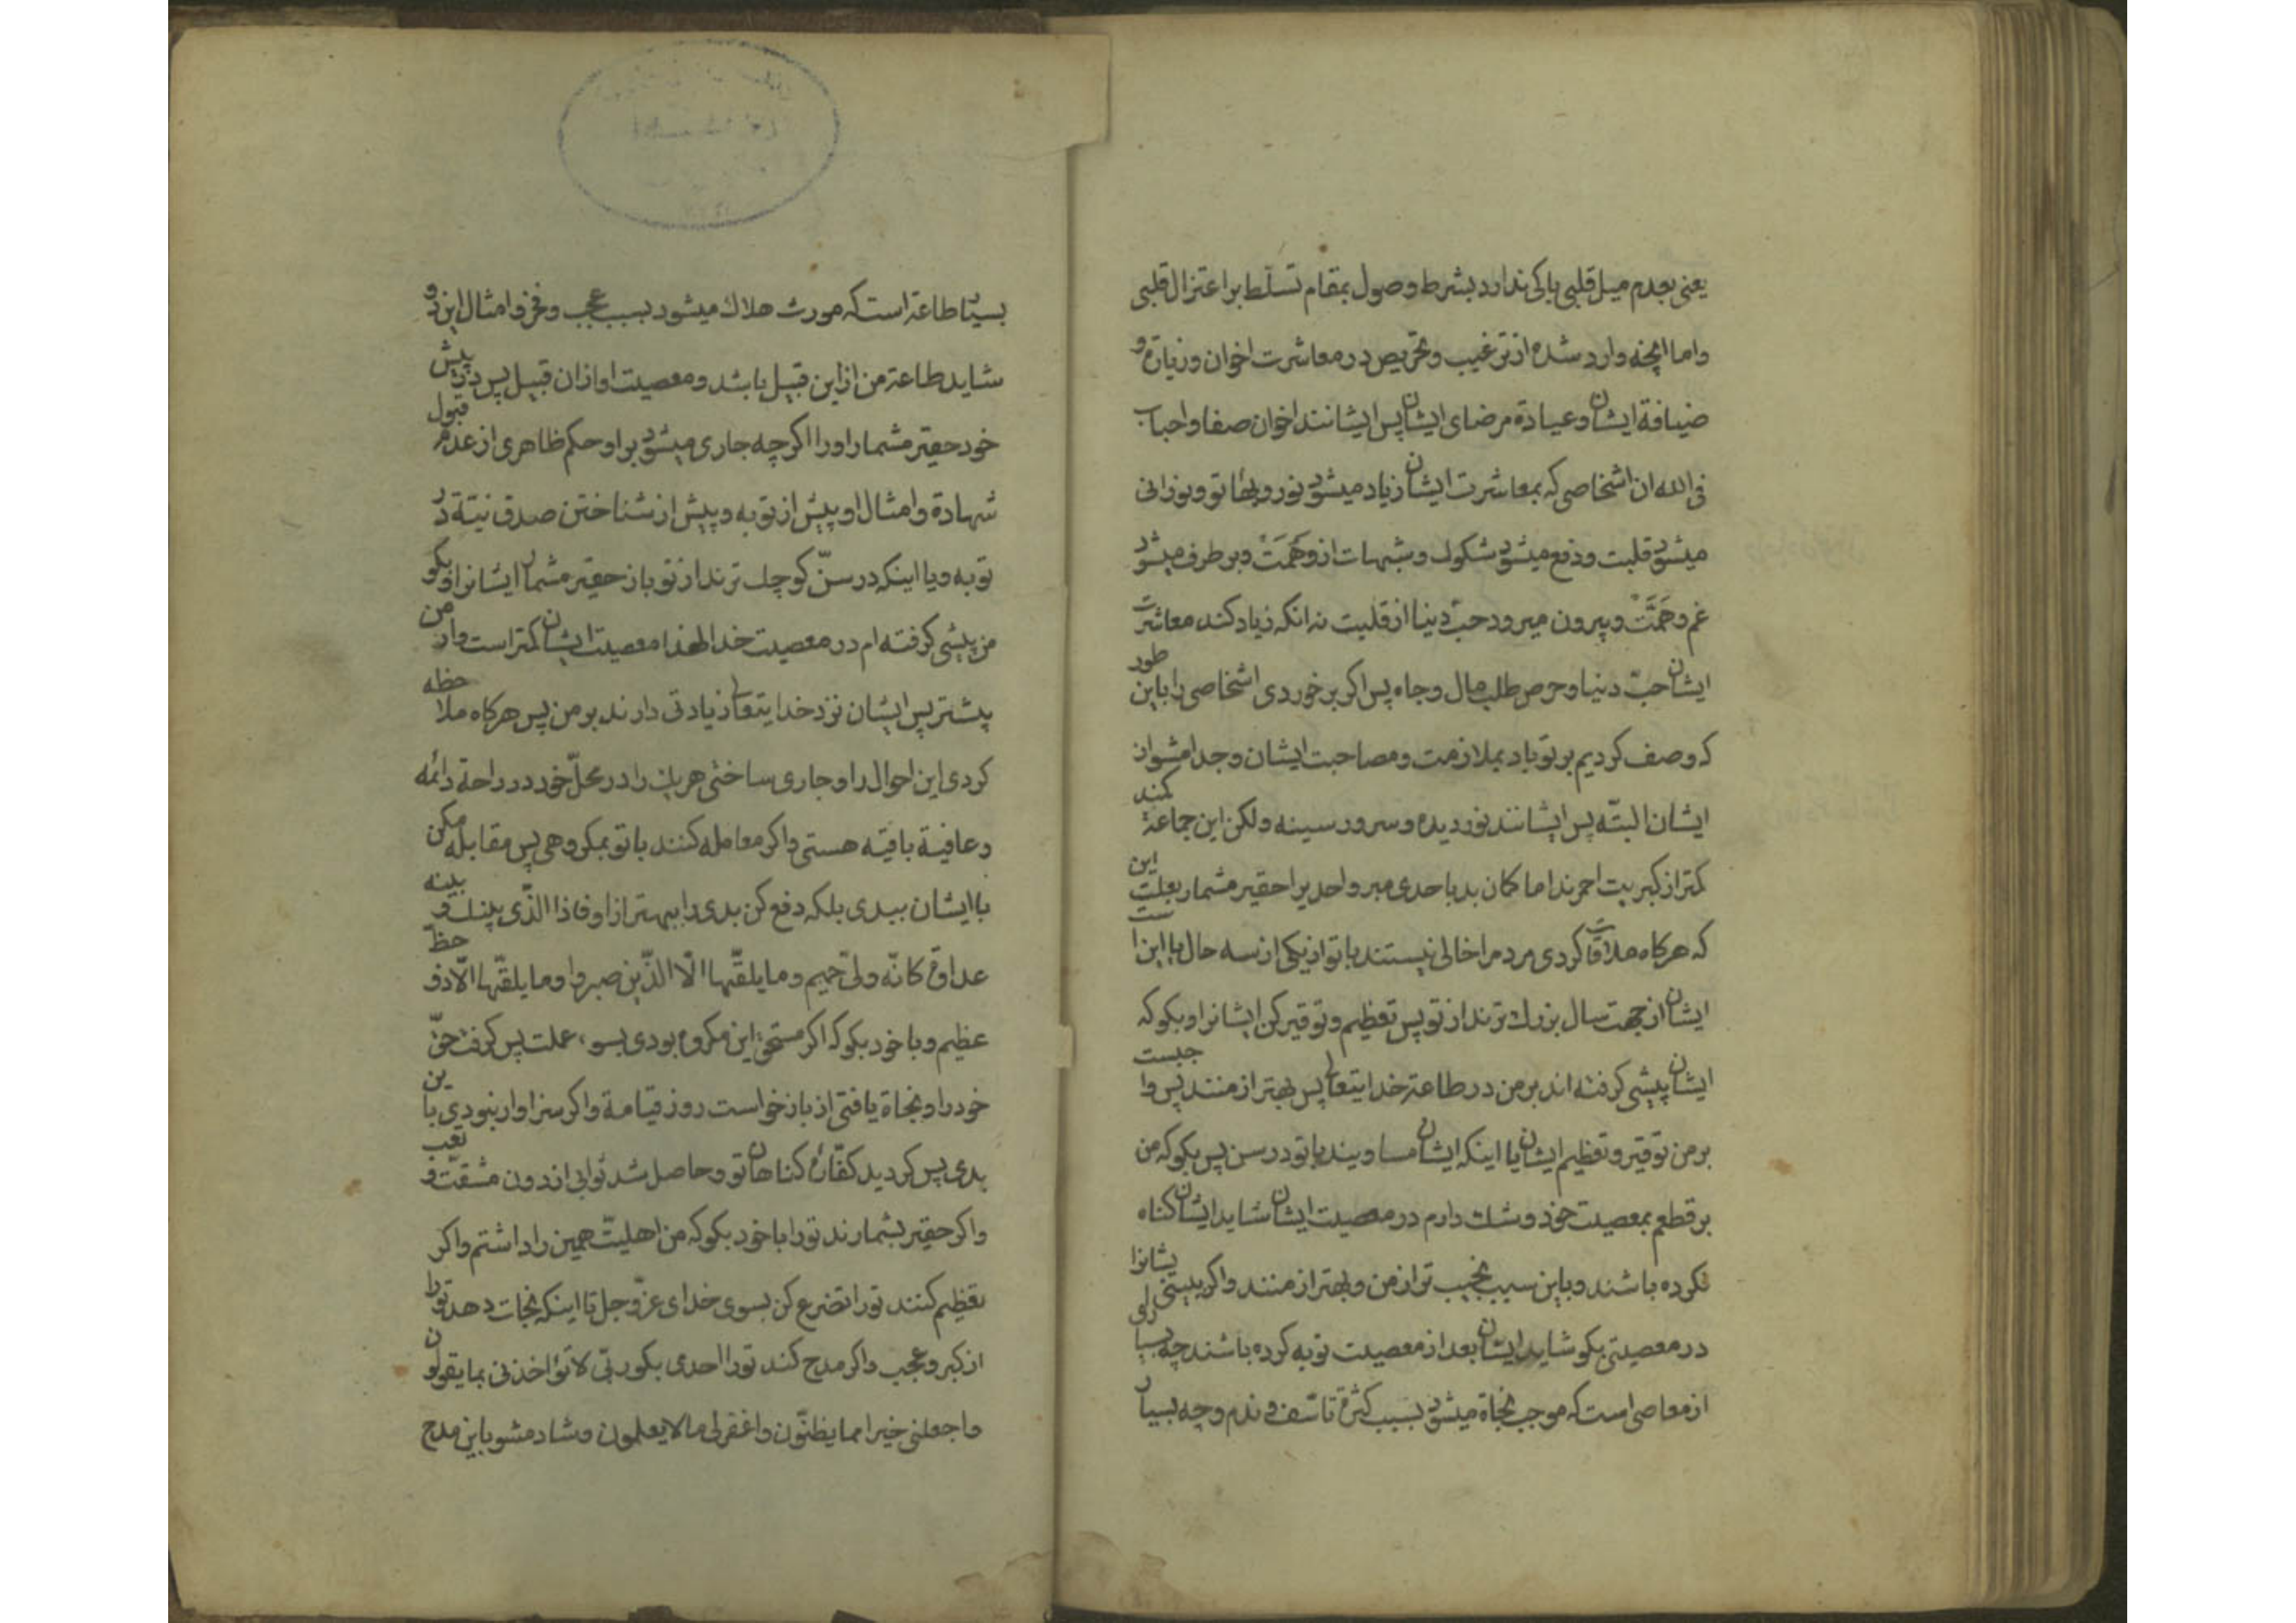 یعنی بعدم میل قلبی باکی ندارد بشرط وصول بمقام تسلّط بر اعتزال قلبی
واما انچه وارد شده از ترغیب وتحریص در معاشرت اخوان وزیارة و
ضیافة ایشان وعیادة مرضای ایشان پس ایشانند اخوان صفا واحباب
فی الله ان اشخاصی که بمعاشرت ایشان زیاد میشود نور وبهاء تو ونورانی
میشود قلبت ودفع میشود شکوک وشبهات از وَهَمَتْ وبر طرف میشود
غم وهَمَّتْ وبیرون میرود حبّ دنیا از قلبت نه انکه زیاد کند معاشرت
ایشان حبّ دنیا وحرص طلب مال وجاه پس اکر بر خوردی اشخاصی را باین طور
که وصف کردیم بر تو باد بملازمت ومصاحبت ایشان وجدا مشو از
ایشان البتّه پس ایشانند نور دیده وسرور سینه ولکن این جماعة
کمتر از کبریت احمرند اما کمان بد باحدی مبر واحدیرا حقیر مشمار بعلت این
که هرکاه ملاقات کردی مردمرا خالی نیستند با تو از یکی از سه حال یا این است
ایشان از جهت سال بزرك ترند از تو پس تعظیم وتوقیر کن ایشانرا وبکو که
ایشان پیشی کرفته اند بر من در طاعة خدایتعالی پس بهتر از منند پس واجبست
بر من توقیر وتعظیم ایشان یا اینکه ایشان مساویند با تو در سن پس بکو که من
بر قطعم بمعصیت خود وشك دارم در معصیت ایشان شاید ایشان کناه
نکرده باشند وباین سبب نجیب تر از من وبهتر از منند واکر ببینی ایشانرا
در معصیتی بکو شاید ایشان بعد از معصیت توبه کرده باشند چه بسیاری
از معاصی است که موجب نجاة میشود بسبب کثرة تاسّف وندم وچه بسیار
بسیار طاعة است که مورث هلاك میشود بسبب عجب وفخر وامثال این دو
شاید طاعة من از این قبیل باشد ومعصیت او از ان قبیل پس در پیش
خود حقیر مشمار او را اکرچه جاری میشود بر او حکم ظاهری از عدم قبول
شهادة وامثال او پیش از توبه وپیش از شناختن صدق نیّة در
توبه ویا اینکه در سنّ کوچك ترند از تو باز حقیر مشمار ایشانرا وبکو
من پیشی کرفته ام در معصیت خدا لهذا معصیت ایشان کمتر است واز من
بیشتر پس ایشان نزد خدایتعالی زیادتی دارند بر من پس هرکاه ملاحظه
کردی این احوال را وجاری ساختی هریك را در محلّ خود در راحة دائمه
وعافیة باقیه هستی واکر معامله کنند با تو بمکروهی پس مقابله مکن
با ایشان ببدی بلکه دفع کن بدی را ببهتر از او فاذا الّذی بینك وبینه
عداوة کانّه ولیّ حمیم وما یلقّیها الّا الذّین صبروا وما یلقّیها الّا ذو حظّ
عظیم وبا خود بکو که اکر مستحق این مکروه بودی بسوء عملت پس کرفت حقّ
خود را ونجاة یافتی از بازخواست روز قیامة واکر سزاوار نبودی باین
بدی پس کردید کفّارهٔ کناهان تو وحاصل شد ثوابی از دون مشقّت وتعب
واکر حقیر بشمارند تو را با خود بکو که من اهلیّت همین را داشتم واکر
تعظیم کنند تو را تضرع کن بسوی خدای عزّ وجل تا اینکه نجات دهد تو را
از کبر وعجب واکر مدح کند تو را احدی بکو ربّی لا تؤاخذنی بما یقولون
واجعلنی خیرا مما یظنّون واغفر لی ما لا یعلمون وشاد مشو باین مدح